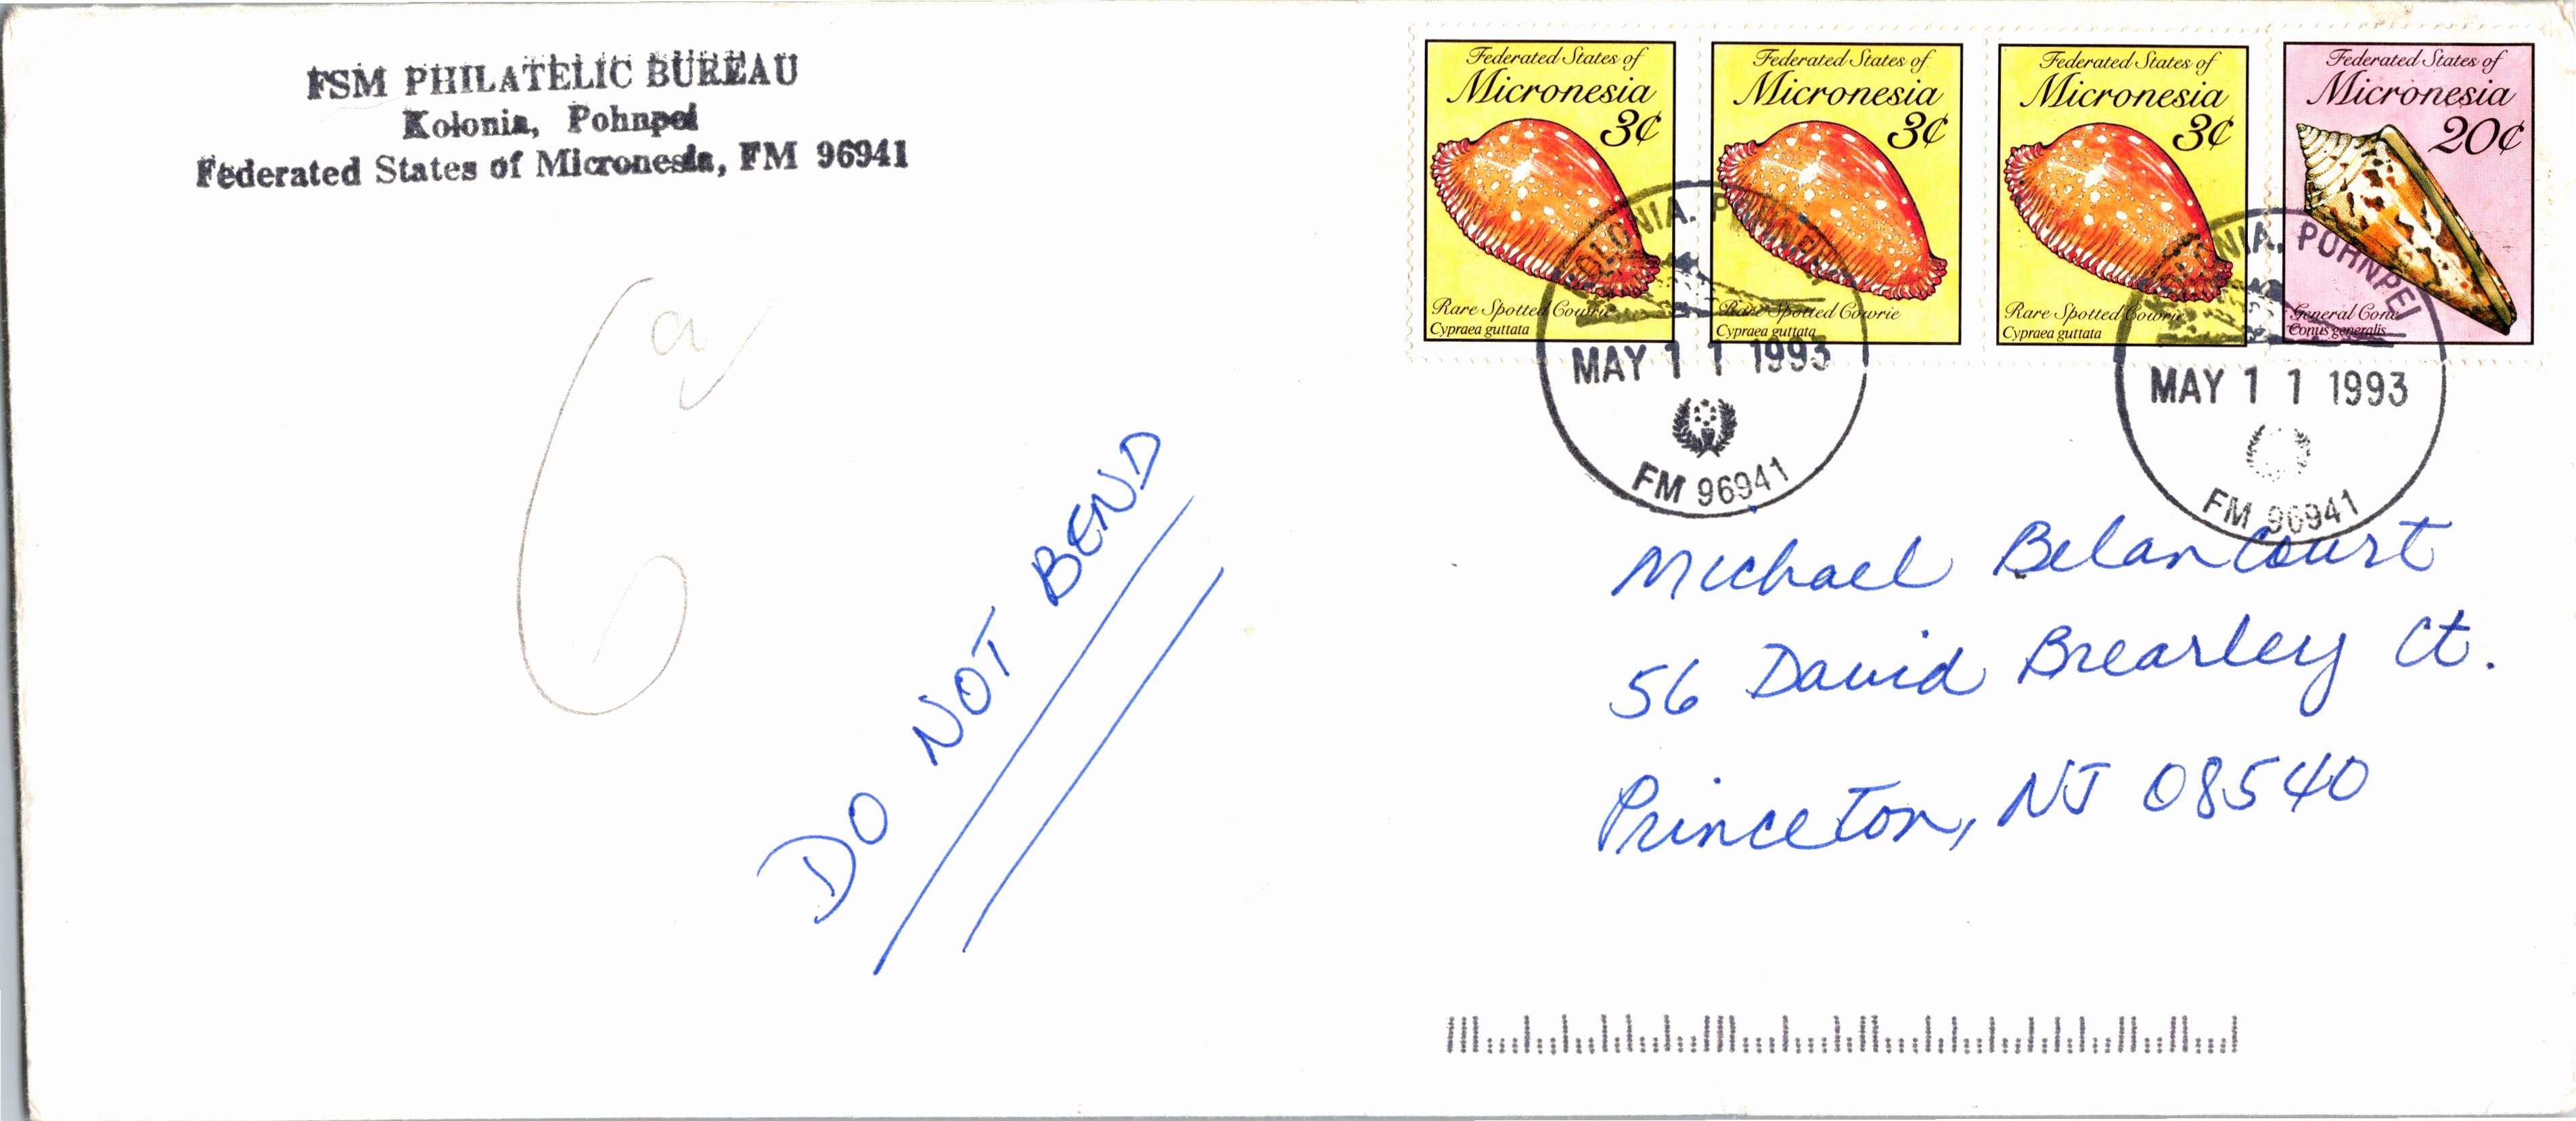 FSM PHILATELIC BUREAU
Kolonia, Pohnpei
Federated States of Micronesia, FM 96941
Federated States of
Micronesia
3¢
Rare Spotted Cowrie
Cypraea guttata
Federated States of
Micronesia
3¢
Rare Spotted Cowrie
Cypraea guttata
Federated States of
Micronesia
3¢
Rare Spotted Cowrie
Cypraea guttata
Federated States of
Micronesia
20¢
General Cone
Conus generalis
KOLONIA, POHNPEI
MAY 11 1993
FM 96941
KOLONIA, POHNPEI
MAY 11 1993
FM 96941
DO NOT BEND
Michael Belancourt
56 David Brearley Ct.
Princeton, NJ 08540